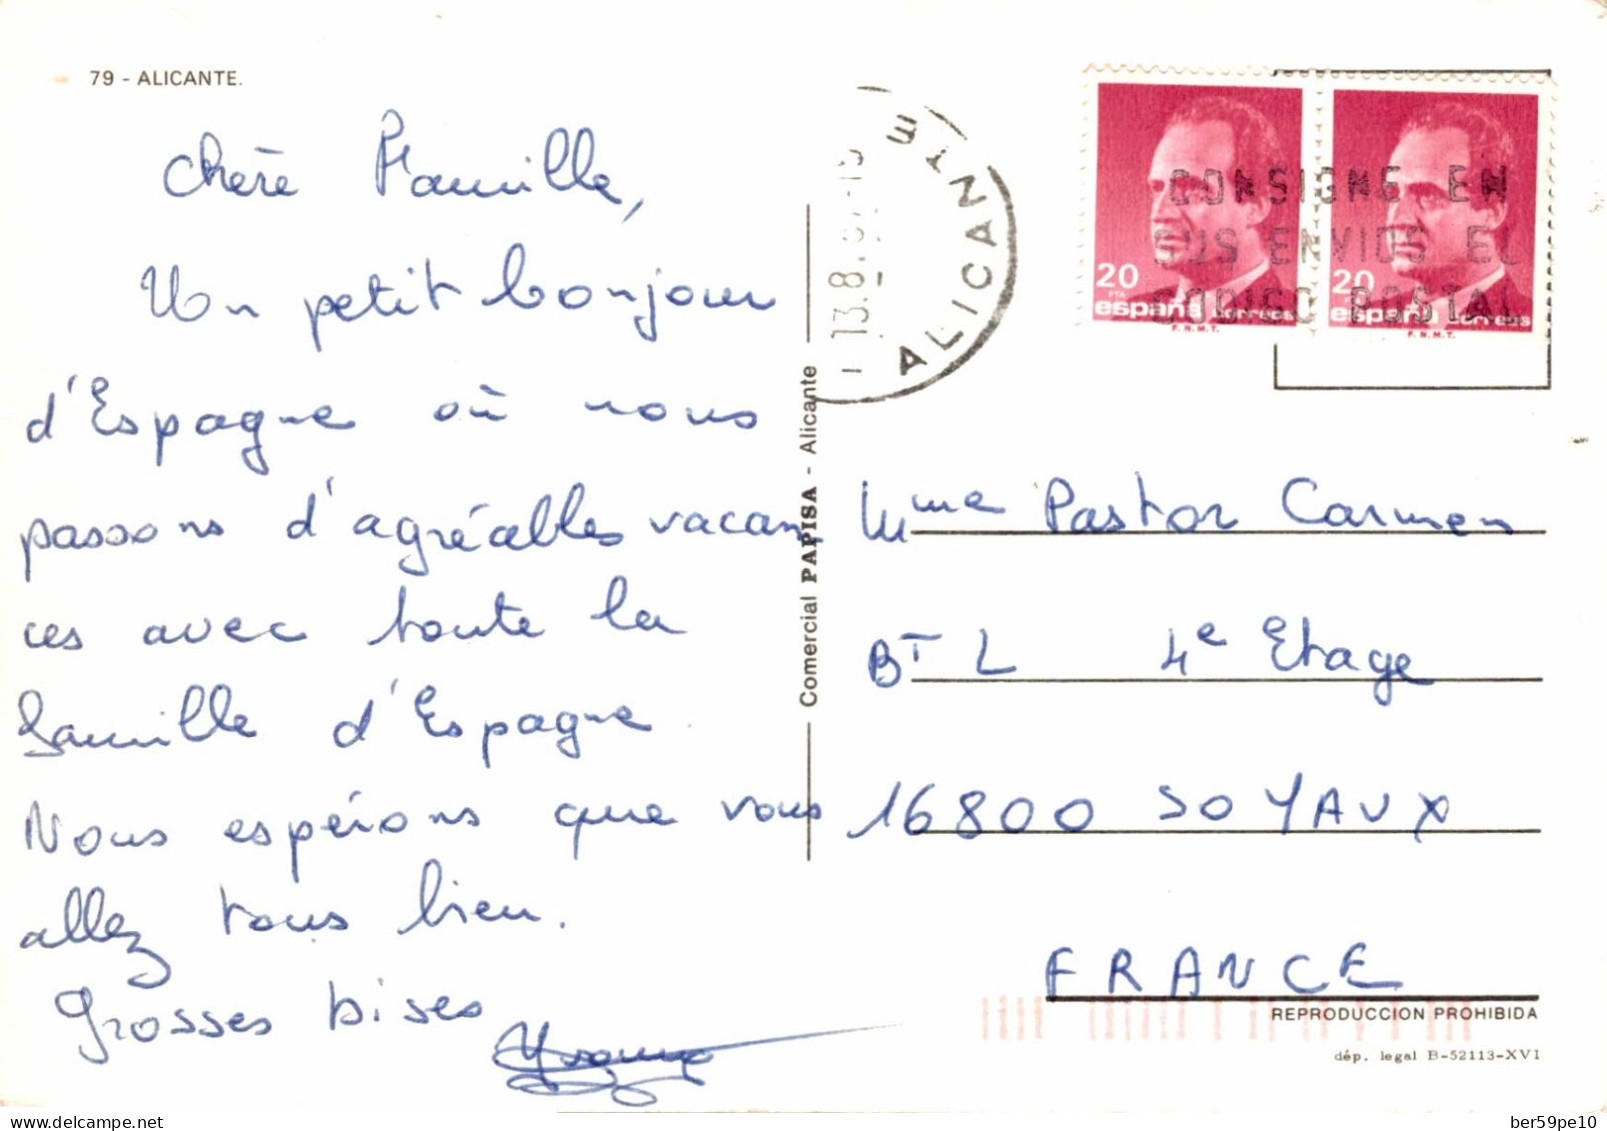 79 - ALICANTE.
Chère Famille,
Un petit bonjour
d'Espagne où nous
passons d'agréables vacan
ces avec toute la
famille d'Espagne.
Nous espérons que vous
allez tous bien.
Grosses bises
Comercial PAPISA - Alicante
13.8.
ALICANTE
CONSIGNE EN
SUS ENVIOS EL
CODIGO POSTAL
20
PTA
españa correos
F.N.M.T.
20
españa correos
F.N.M.T.
Mme Pastor Carmen
BT L 4e Etage
16800 SOYAUX
FRANCE
REPRODUCCION PROHIBIDA
dép. legal B-52113-XVI
ber59pe10